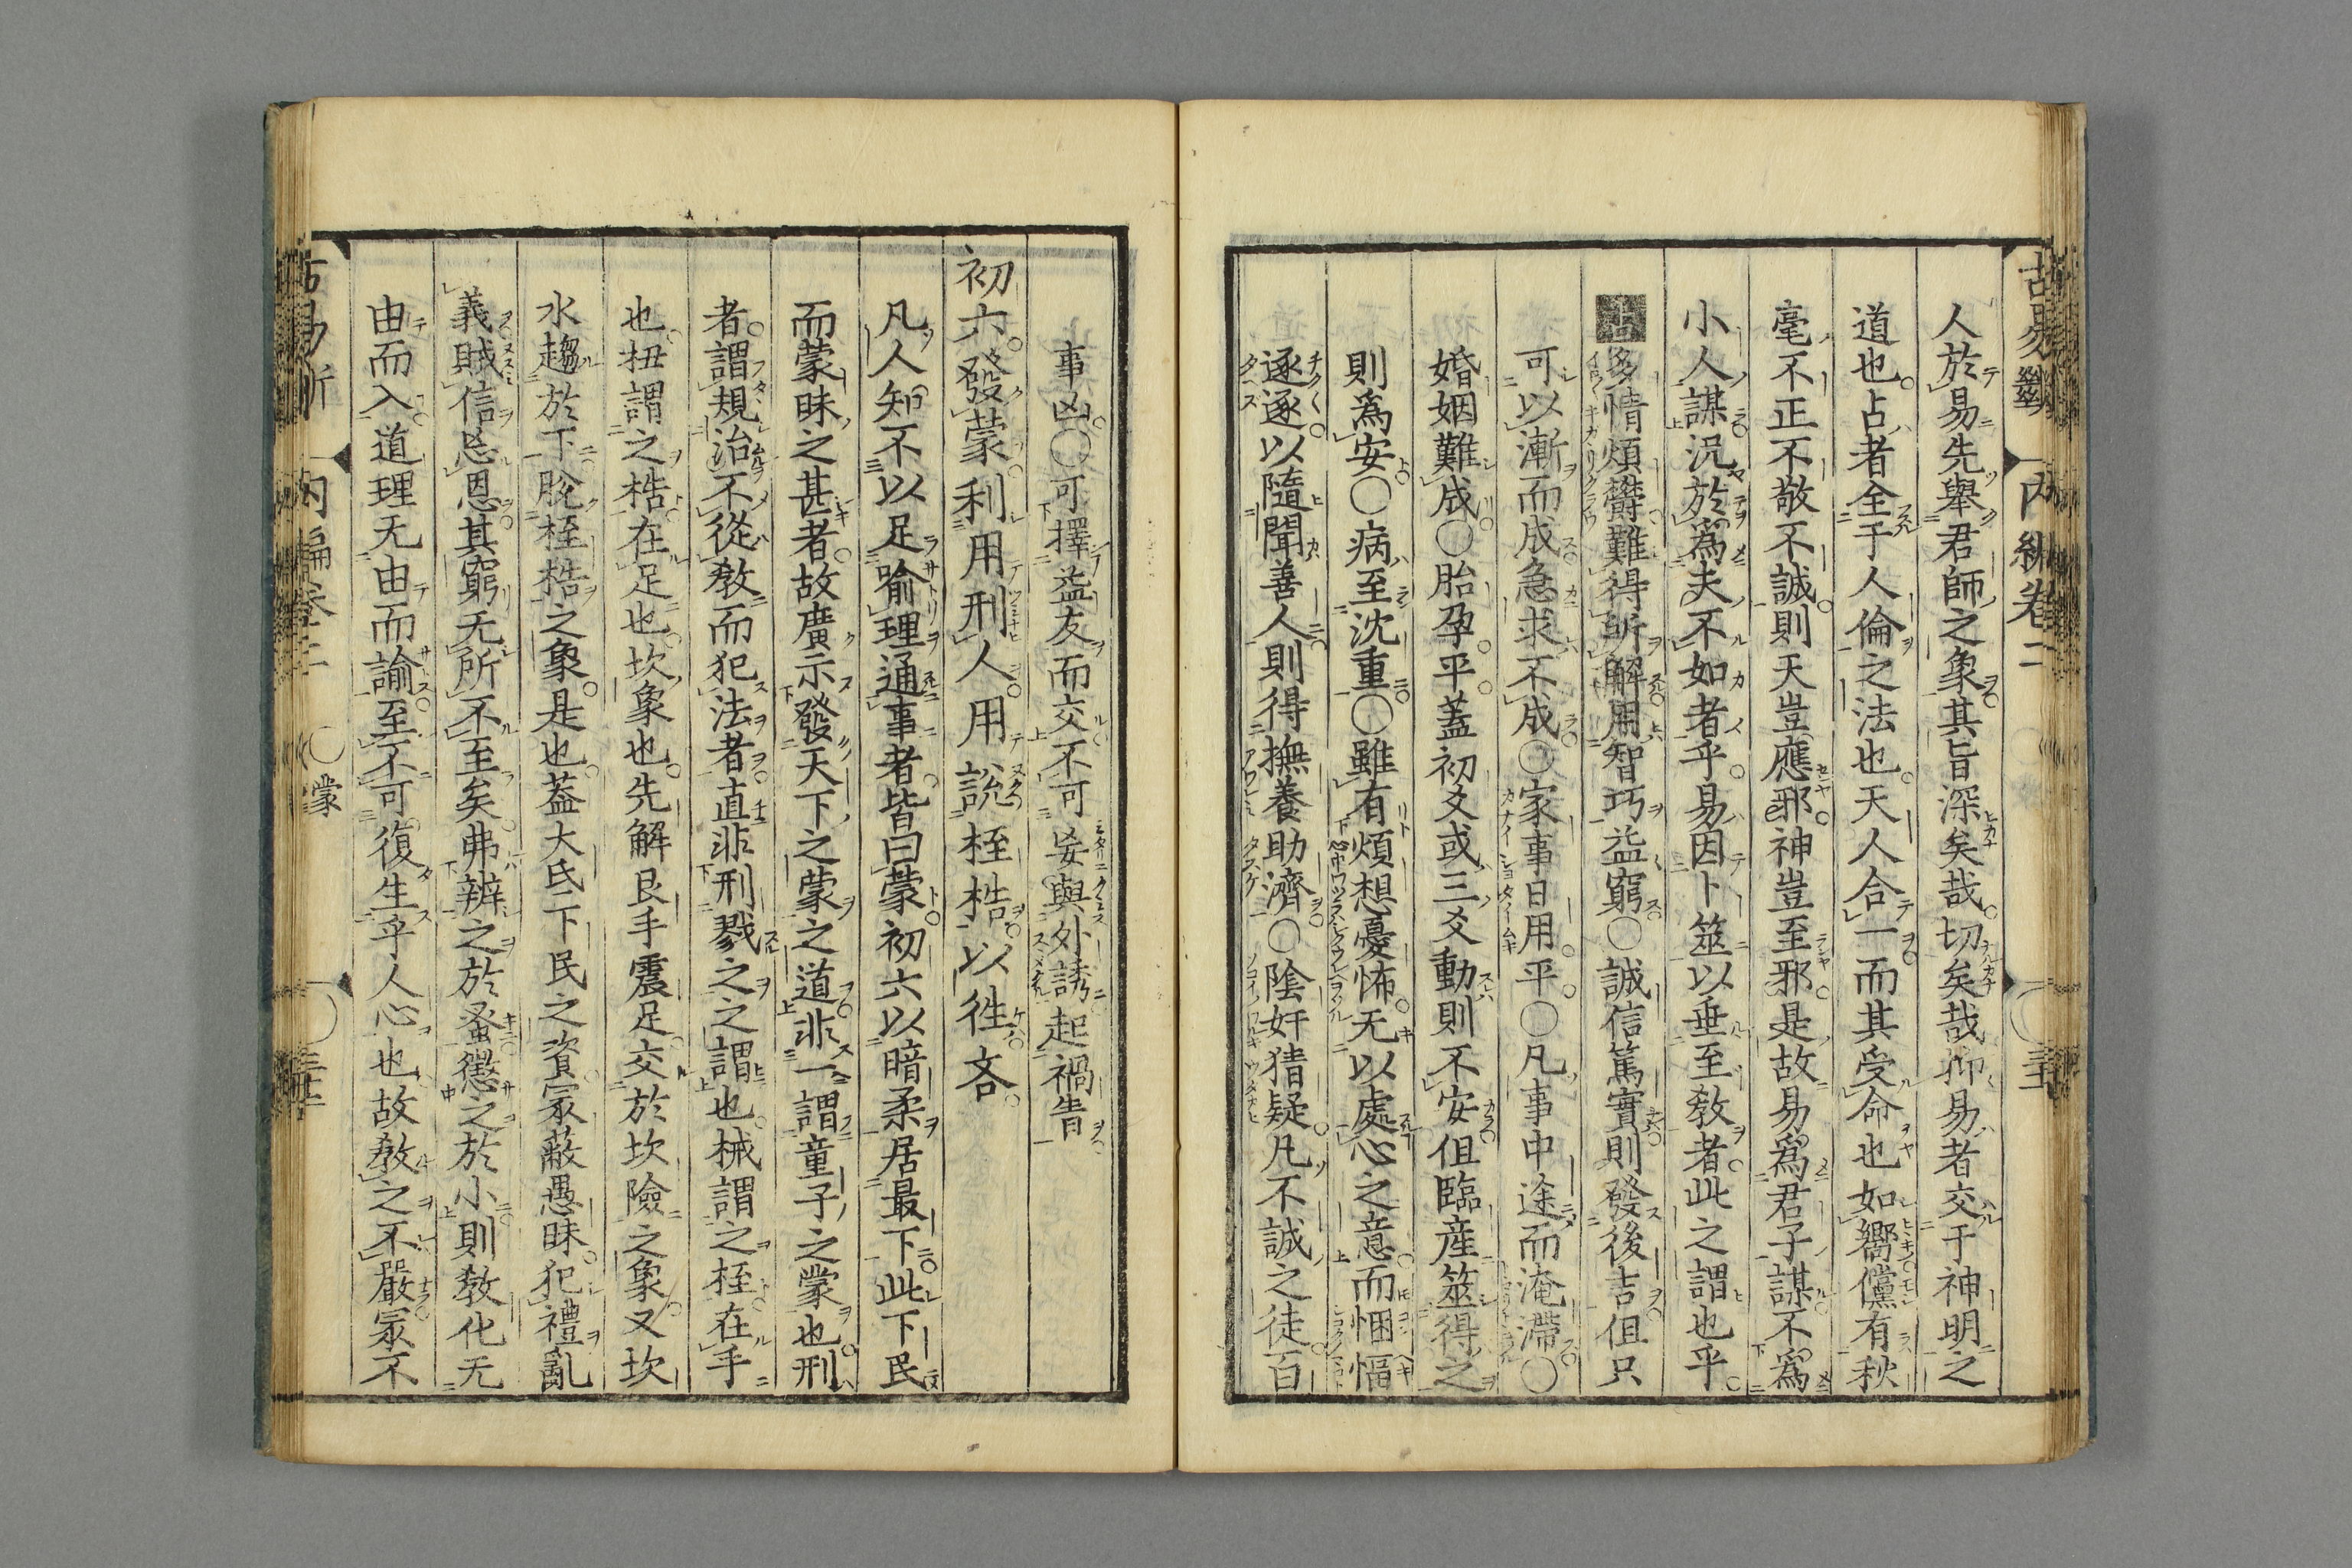 人於易先舉君師之象其旨深矣哉切矣哉抑易者交于神明之
道也占者全于人倫之法也天人合一而其受命也如嚮儻有秋
毫不正不敬不誠則天豈應邪神豈至邪是故易爲君子謀不爲
小人謀況於爲夫不如者乎易因卜筮以垂至教者此之謂也乎
占多情煩欝難得所解用智巧益窮○誠信篤實則發後吉但只
可以漸而成急求不成○家事日用平○凡事中途而淹滯○
婚姻難成○胎孕平蓋初爻或三爻動則不安但臨産筮得之
則爲安○病至沈重○雖有煩想憂怖无以處心之意而悃愊
逐逐以隨聞善人則得撫養助濟○陰奸猜疑凡不誠之徒百
事凶○可擇益友而交不可妄與外誘起禍眚
初六發蒙利用刑人用說桎梏以往吝
凡人知不以足喻理通事者皆曰蒙初六以暗柔居最下此下民
而蒙昧之甚者故廣示發天下之蒙之道非一謂童子之蒙也刑
者謂規治不從教而犯法者直非刑戮之之謂也械謂之桎在手
也杻謂之梏在足也坎象也先解艮手震足交於坎險之象又坎
水趨於下脫桎梏之象是也蓋大氏下民之資冡蔽愚昧犯禮亂
義賊信忘恩其窮无所不至矣弗辨之於蚤懲之於小則教化无
由而入道理无由而諭至不可復生乎人心也故教之不嚴冡不